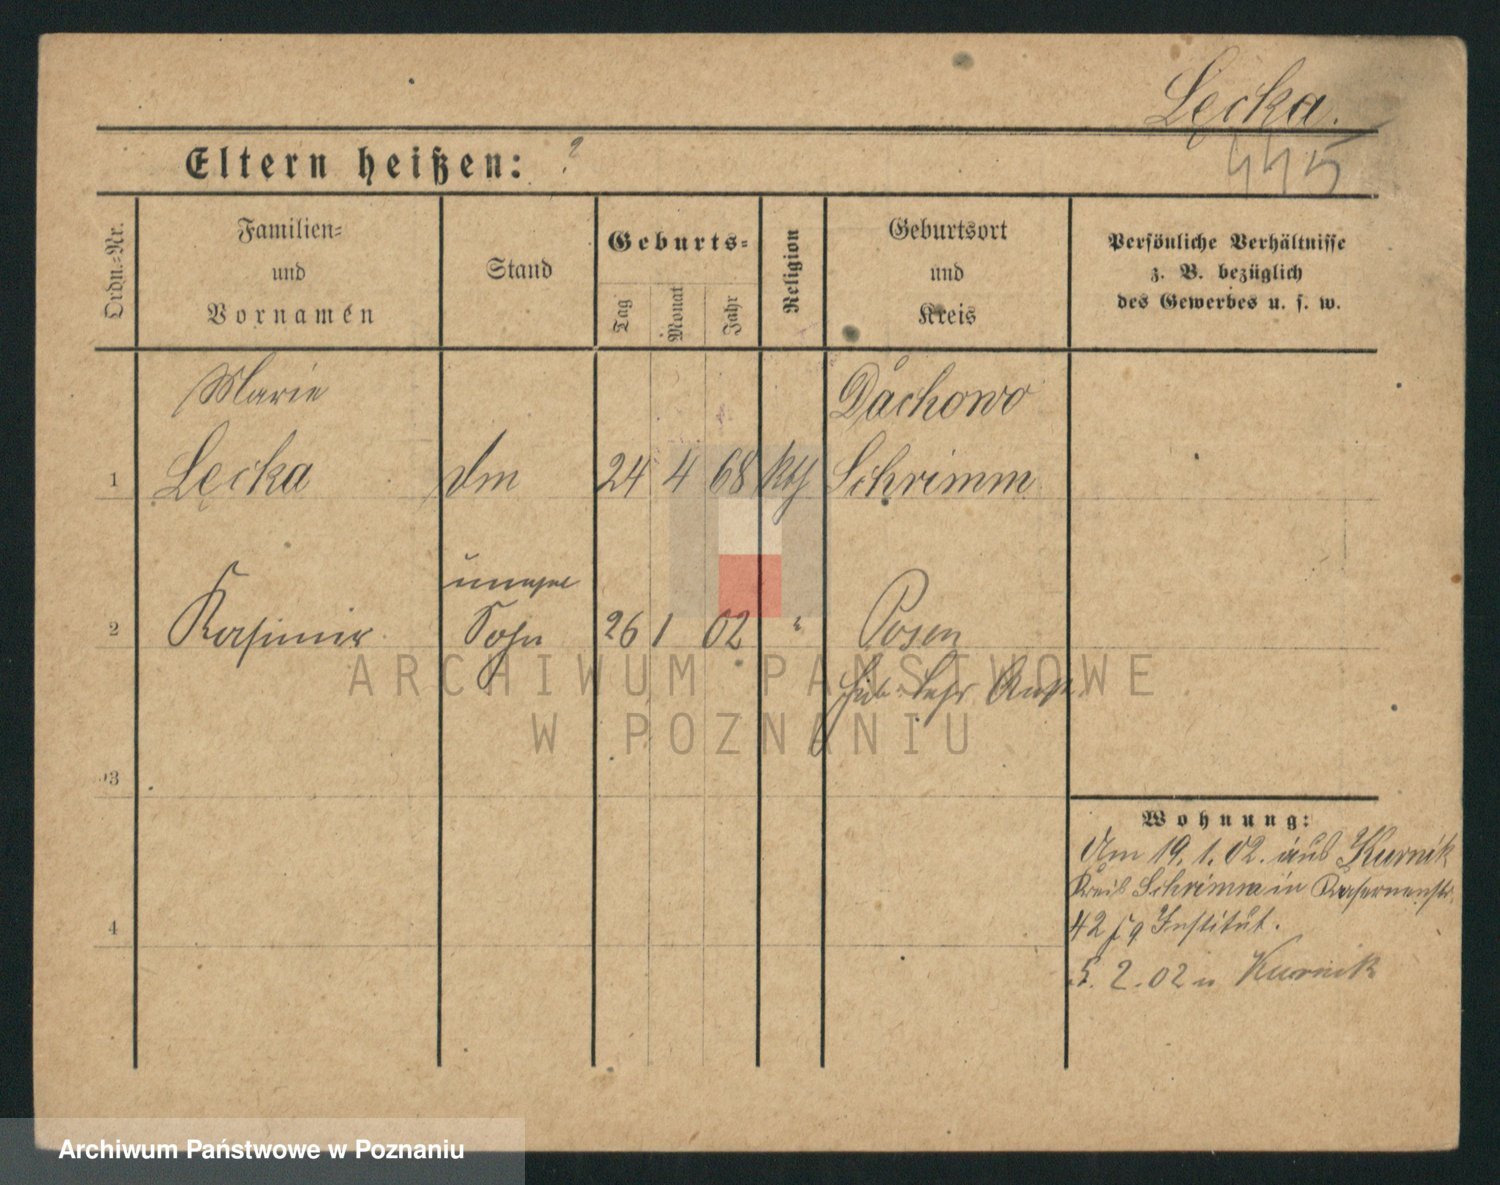 Lęcka.
445
Eltern heißen: ?
Ordn.=Nr.
Familien=
und
Vornamen
Stand
Geburts=
Tag
Monat
Jahr
Religion
Geburtsort
und
Kreis
Persönliche Verhältnisse
z. B. bezüglich
des Gewerbes u. s. w.
Marie
Dachowo
1 Lęcka 24 4 68 Schrimm
2 Kasimir Sohn 26 1 02 " Posen
3
4
Wohnung:
Am 19.1.02. aus Kurnik
Kreis Schrimm in Kasernenstr.
42 Institut.
5. 2. 02 n Kurnik
ARCHIWUM PAŃSTWOWE
W POZNANIU
Archiwum Państwowe w Poznaniu